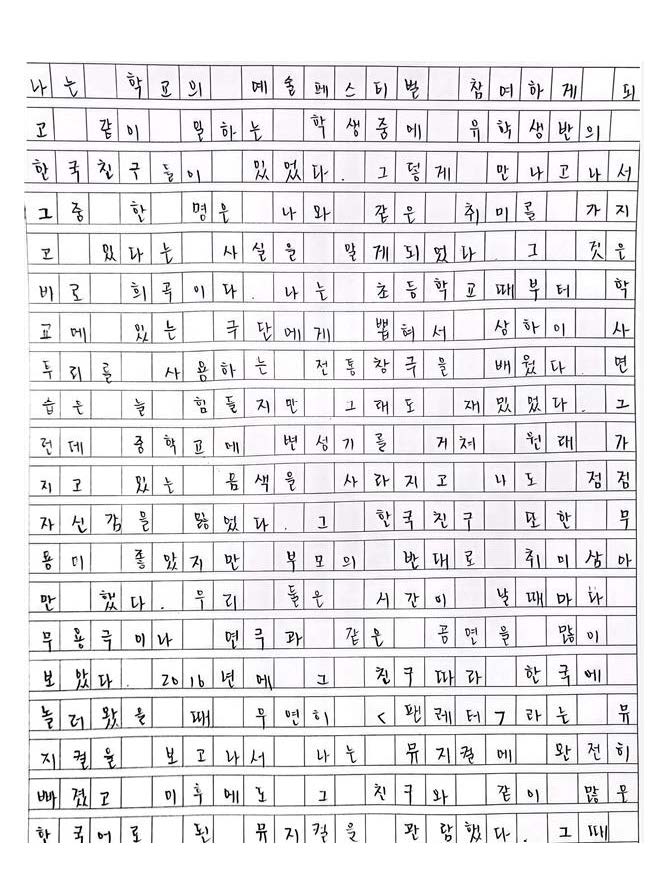 나는 학교의 예술페스티벌 참여하게 되
고 같이 일하는 학생중에 유학생반의
한국친구들이 있었다. 그렇게 만나고나서
그중 한 명은 나와 같은 취미를 가지
고 있다는 사실을 알게되었다. 그 것은
비로 희곡이다. 나는 초등학교때부터 학
교에 있는 극단에게 뽑혀서 상하이 사
투리를 사용하는 전통창극을 배웠다. 연
습은 늘 힘들지만 그래도 재밌었다. 그
런데 중학교에 변성기를 거쳐 원래 가
지고 있는 음색을 사라지고 나도 점점
자신감을 잃었다. 그 한국친구 또한 무
용미 좋았지만 부모의 반대로 취미삼아
만 했다. 우리 들은 시간이 날때마다
무용극이나 연극과 같은 공연을 많이
보았다. 2016년에 그 친구따라 한국에
놀러왔을 때 우연히 <팬레터>라는 뮤
지컬을 보고나서 나는 뮤지컬에 완전히
빠졌고 이후에도 그 친구와 같이 많은
한국어로 된 뮤지컬을 관람했다. 그때